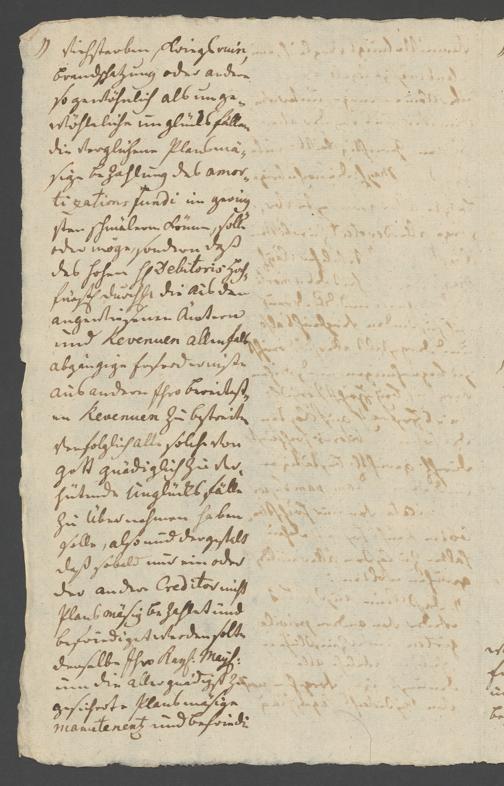 Viehsterben, Kriegsruin,
brandschatzung oder andere
so gewöhnlich als unge-
wöhnliche unglücks fällen
die verglichene Plans mä-
sige bezahlung des amor-
tizations fundi im gering
sten schmälern könne, solle
oder möge, sondern daß
des hohen H Debitoris Hoch
fürstl durchl die aus den
angewiesenen Ämtern
und Revenuen allenfalls
abgängige erfordernisse
aus andern Ihro bereitest-
en Revenuen zu bestreiten
verfolglich alle solche von
gott gnädiglich zu ver-
hütende Unglücksfälle
zu übernehmen haben
solle, also und dergestalt
daß sobald nur ein oder
der andere Creditor nicht
Plans mäsig bezahlet und
befriediget werden solte
derselbe Ihro Kayß. Mayst:
um die allergnädigst zu
gesicherte Plansmäsige
manutenentz und befriedi